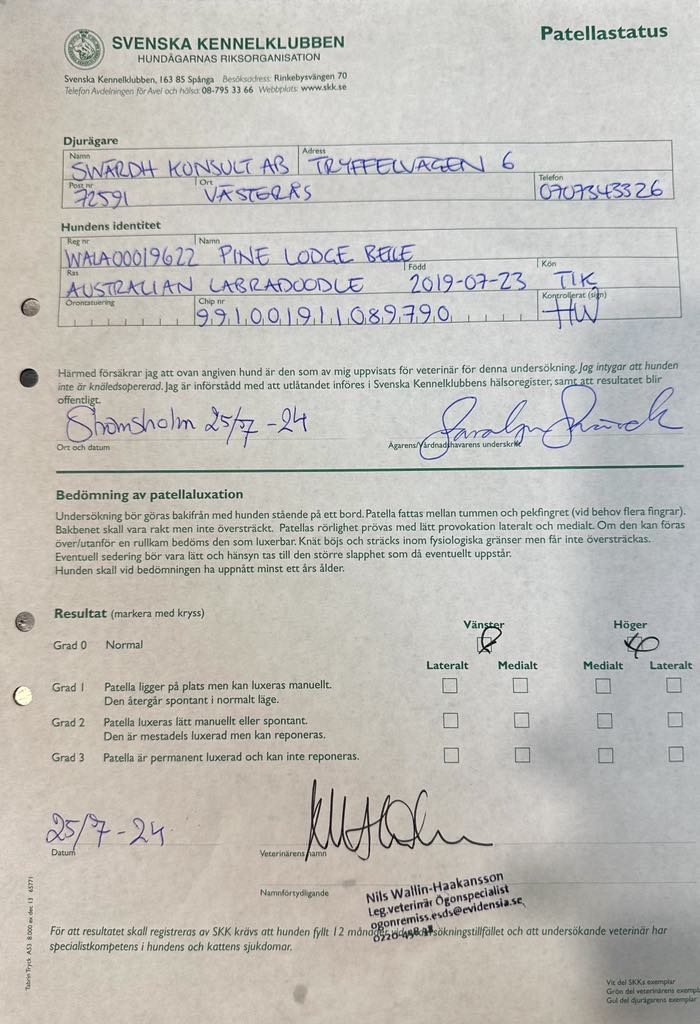 SVENSKA KENNELKLUBBEN
HUNDÄGARNAS RIKSORGANISATION
Patellastatus
Svenska Kennelklubben, 163 85 Spånga Besöksadress: Rinkebysvängen 70
Telefon Avdelningen för Avel och hälsa: 08-795 33 66 Webbplats: www.skk.se
Djurägare
Namn Adress
SWÄRDH KONSULT AB TRYFFELVÄGEN 6
Post nr Ort Telefon
72591 VÄSTERÅS 0707343326
Hundens identitet
Reg nr Namn
WALA00019622 PINE LODGE BELLE
Ras Född Kön
AUSTRALIAN LABRADOODLE 2019-07-23 TIK
Örontatuering Chip nr Kontrollerat (sign)
991001911089790 HW
Härmed försäkrar jag att ovan angiven hund är den som av mig uppvisats för veterinär för denna undersökning. Jag intygar att hunden
inte är knäledsopererad. Jag är införstådd med att utlåtandet införes i Svenska Kennelklubbens hälsoregister, samt att resultatet blir
offentligt.
Strömsholm 25/7 -24
Ort och datum Ägarens/Vårdnadshavarens underskrift
Bedömning av patellaluxation
Undersökning bör göras bakifrån med hunden stående på ett bord. Patella fattas mellan tummen och pekfingret (vid behov flera fingrar).
Bakbenet skall vara rakt men inte översträckt. Patellas rörlighet prövas med lätt provokation lateralt och medialt. Om den kan föras
över/utanför en rullkam bedöms den som luxerbar. Knät böjs och sträcks inom fysiologiska gränser men får inte översträckas.
Eventuell sedering bör vara lätt och hänsyn tas till den större slapphet som då eventuellt uppstår.
Hunden skall vid bedömningen ha uppnått minst ett års ålder.
Resultat (markera med kryss)
Vänster Höger
Grad 0 Normal
Lateralt Medialt Medialt Lateralt
Grad 1 Patella ligger på plats men kan luxeras manuellt.
Den återgår spontant i normalt läge.
Grad 2 Patella luxeras lätt manuellt eller spontant.
Den är mestadels luxerad men kan reponeras.
Grad 3 Patella är permanent luxerad och kan inte reponeras.
25/7 -24
Datum Veterinärens namn
Namnförtydligande
Nils Wallin-Haakansson
Leg.veterinär Ögonspecialist
ogonremiss.esds@evidensia.se
För att resultatet skall registreras av SKK krävs att hunden fyllt 12 månader och att undersökande veterinär har
specialistkompetens i hundens och kattens sjukdomar.
Tabrin Tryck A53 8 000 ex dec 13 65771
Vit del SKKs exemplar
Grön del veterinärens exemplar
Gul del djurägarens exemplar